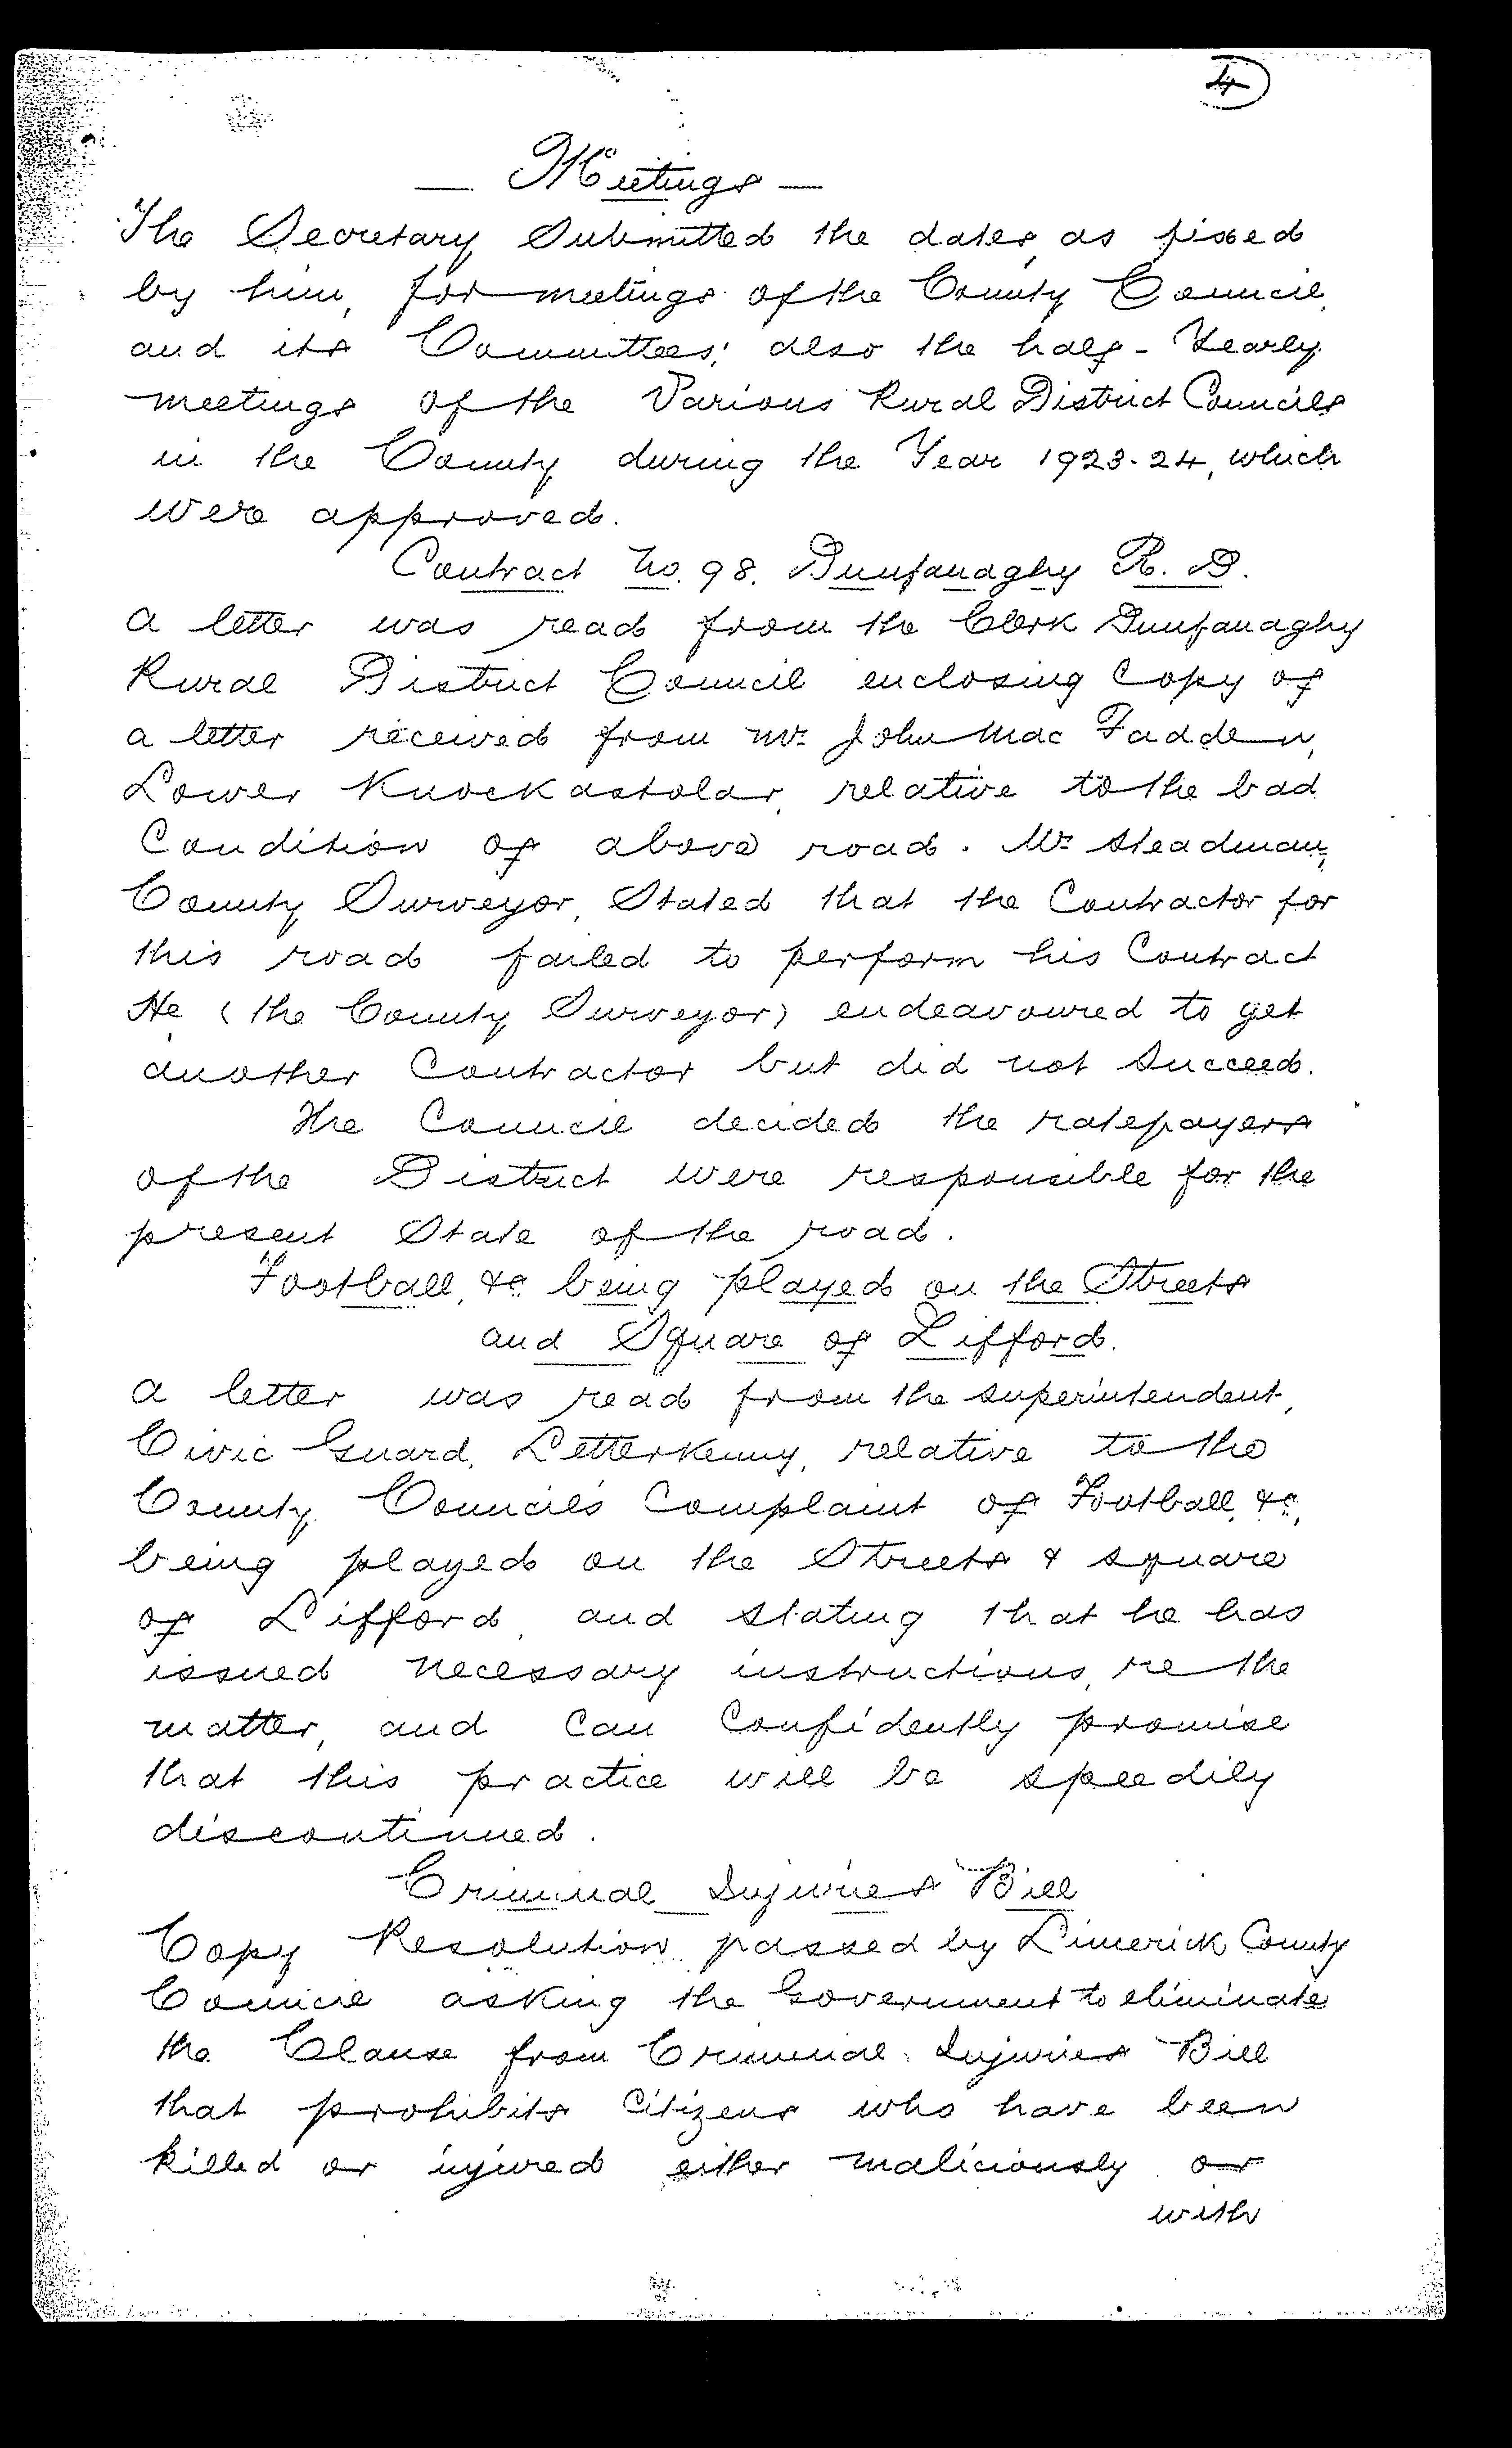 4
— Meetings —
The Secretary Submitted the dates, as fixed
by him, for meetings of the County Council,
and its Committees; also the half-Yearly
meetings of the Various Rural District Councils
in the County during the Year 1923-24, which
were approved.
Contract No. 98. Dunfanaghy R. D.
A letter was read from the Clerk Dunfanaghy
Rural District Council enclosing Copy of
a letter received from Mr. John Mac Fadden,
Lower Knockastolar, relative to the bad
Condition of above road. Mr. Steadman,
County Surveyor, Stated that the Contractor for
this road failed to perform his Contract
He (the County Surveyor) endeavoured to get
another Contractor but did not Succeed.
The Council decided the ratepayers
of the District were responsible for the
present State of the road.
Football, &c. being played on the Streets
and Square of Lifford.
A letter was read from the Superintendent,
Civic Guard, Letterkenny, relative to the
County Council's Complaint of Football, &c.,
being played on the Streets & Square
of Lifford, and stating that he has
issued necessary instructions, re the
matter, and can Confidently promise
that this practice will be speedily
discontinued.
Criminal Injuries Bill
Copy Resolution passed by Limerick County
Council asking the Government to eliminate
the Clause from Criminal Injuries Bill
that prohibits Citizens who have been
killed or injured either maliciously or
with